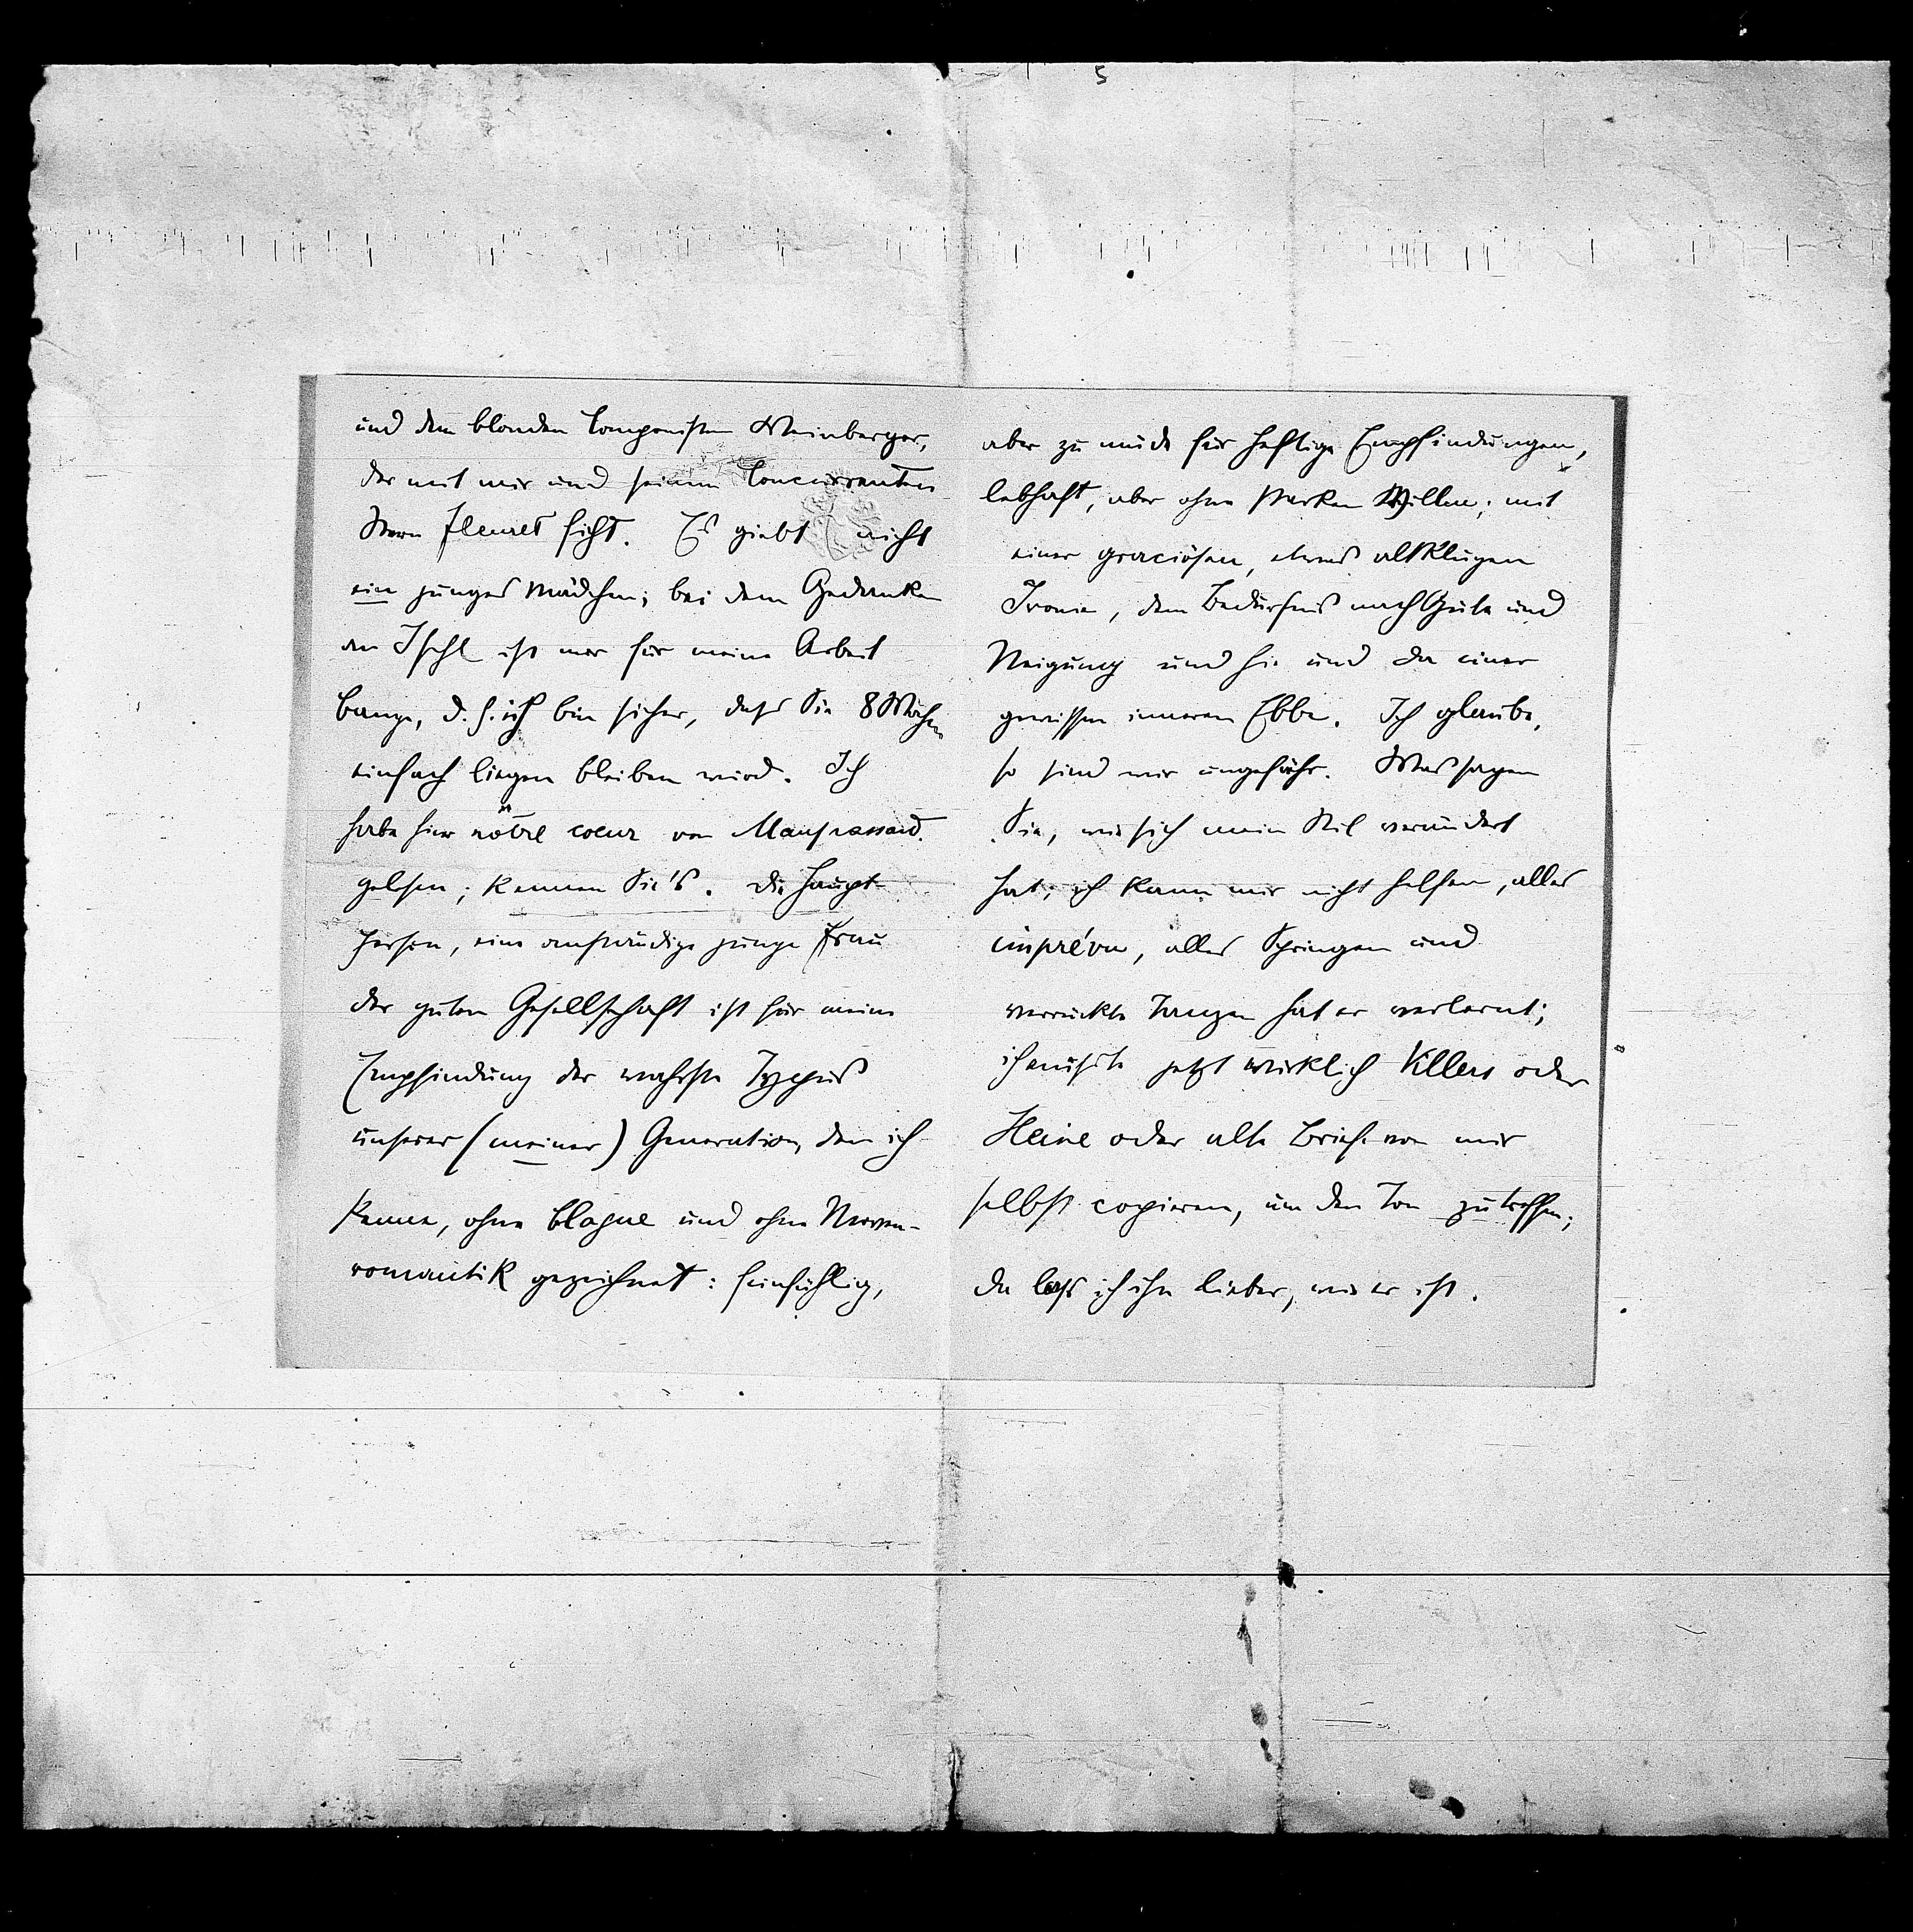 5
und dem blonden Componisten Weinberger,
der mit mir und seinem Concurrenten
Stern fleuret ficht. Es giebt nicht
ein junges Mädchen; bei dem Gedanken
an Ischl ist mir für meine Arbeit
bange, d. h. ich bin sicher, dass Sie 8 Wochen
einfach liegen bleiben wird. Ich
habe hier nôtre coeur von Maupassant
gelesen; kennen Sie's. Die Haupt-
person, eine anständige junge Frau
der guten Gesellschaft ist für meine
Empfindung der wahrste Typus
unserer (meiner) Generation, den ich
kenne, ohne blague und ohne Nerven-
romantik gezeichnet: feinfühlig,
aber zu müde für heftige Empfindungen,
lebhaft, aber ohne starken Willen; mit
einer graciösen, etwas altklugen
Ironie, dem Bedürfnis nach Güte und
Neigung und hie und da einer
gewissen inneren Ebbe. Ich glaube,
so sind wir ungefähr. Was sagen
Sie, wie sich mein Stil verändert
hat; ich kann mir nicht helfen, alles
imprévu, alles Springen und
verrückte Tanzen hat er verlernt;
ich müsste jetzt wirklich Villers oder
Heine oder alte Briefe von mir
selbst copieren, um den Ton zu treffen;
da lass ich ihn lieber, wie er ist.